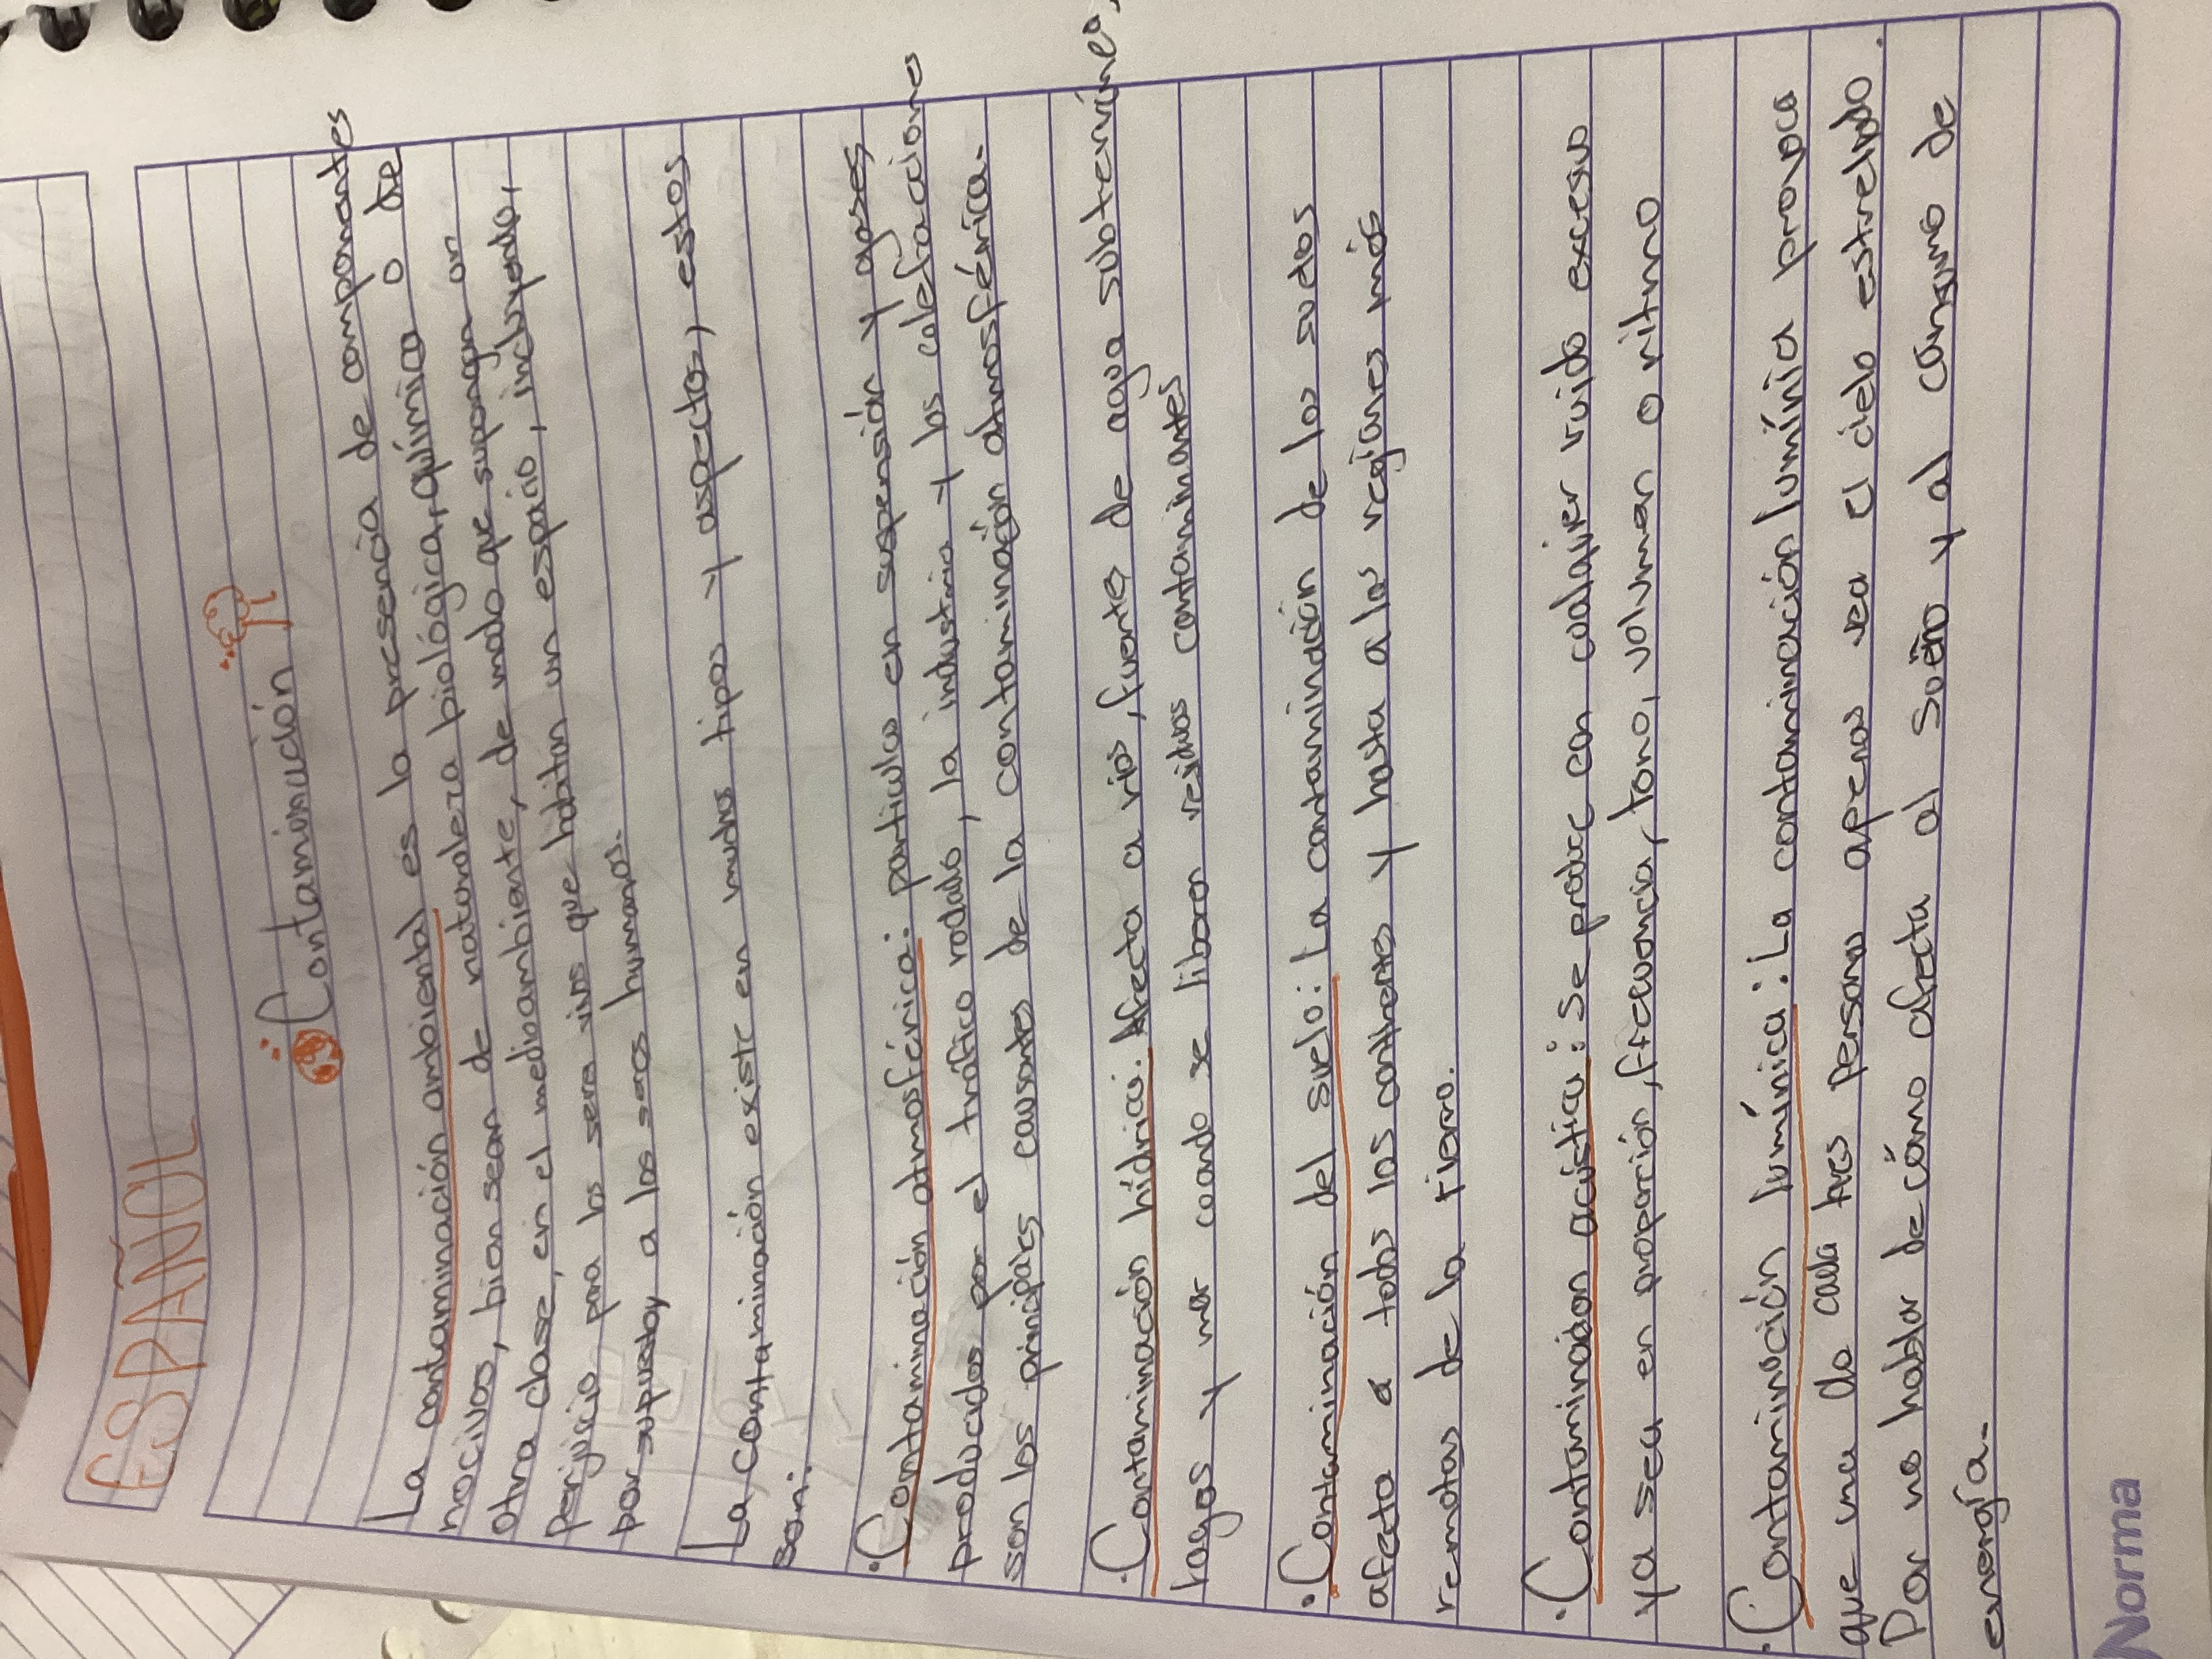 ESPAÑOL
Contaminación
La contaminación ambiental es la presencia de componentes
nocivos, bien sean de naturaleza biológica, química o de
otra clase, en el medioambiente, de modo que supongan un
perjuicio para los seres vivos que habitan un espacio, incluyendo,
por supuesto, a los seres humanos.
La contaminación existe en muchos tipos y aspectos, estos
son:
· Contaminación atmosférica: partículas en suspensión y gases
producidos por el tráfico rodado, la industria y las calefacciones
son los principales causantes de la contaminación atmosférica.
· Contaminación hídrica: Afecta a ríos, fuentes de agua subterráneo,
lagos y mar cuando se liberan residuos contaminantes
· Contaminación del suelo: La contaminación de los suelos
afecta a todos los continentes y hasta a las regiones más
remotas de la tierra.
· Contaminación acústica: Se produce con cualquier ruido excesivo
ya sea en proporción, frecuencia, tono, volumen o ritmo
· Contaminación lumínica: La contaminación lumínia provoca
que una de cada tres personas apenas vea el cielo estrellado.
Por no hablar de cómo afecta al sueño y al consumo de
energía.
Norma